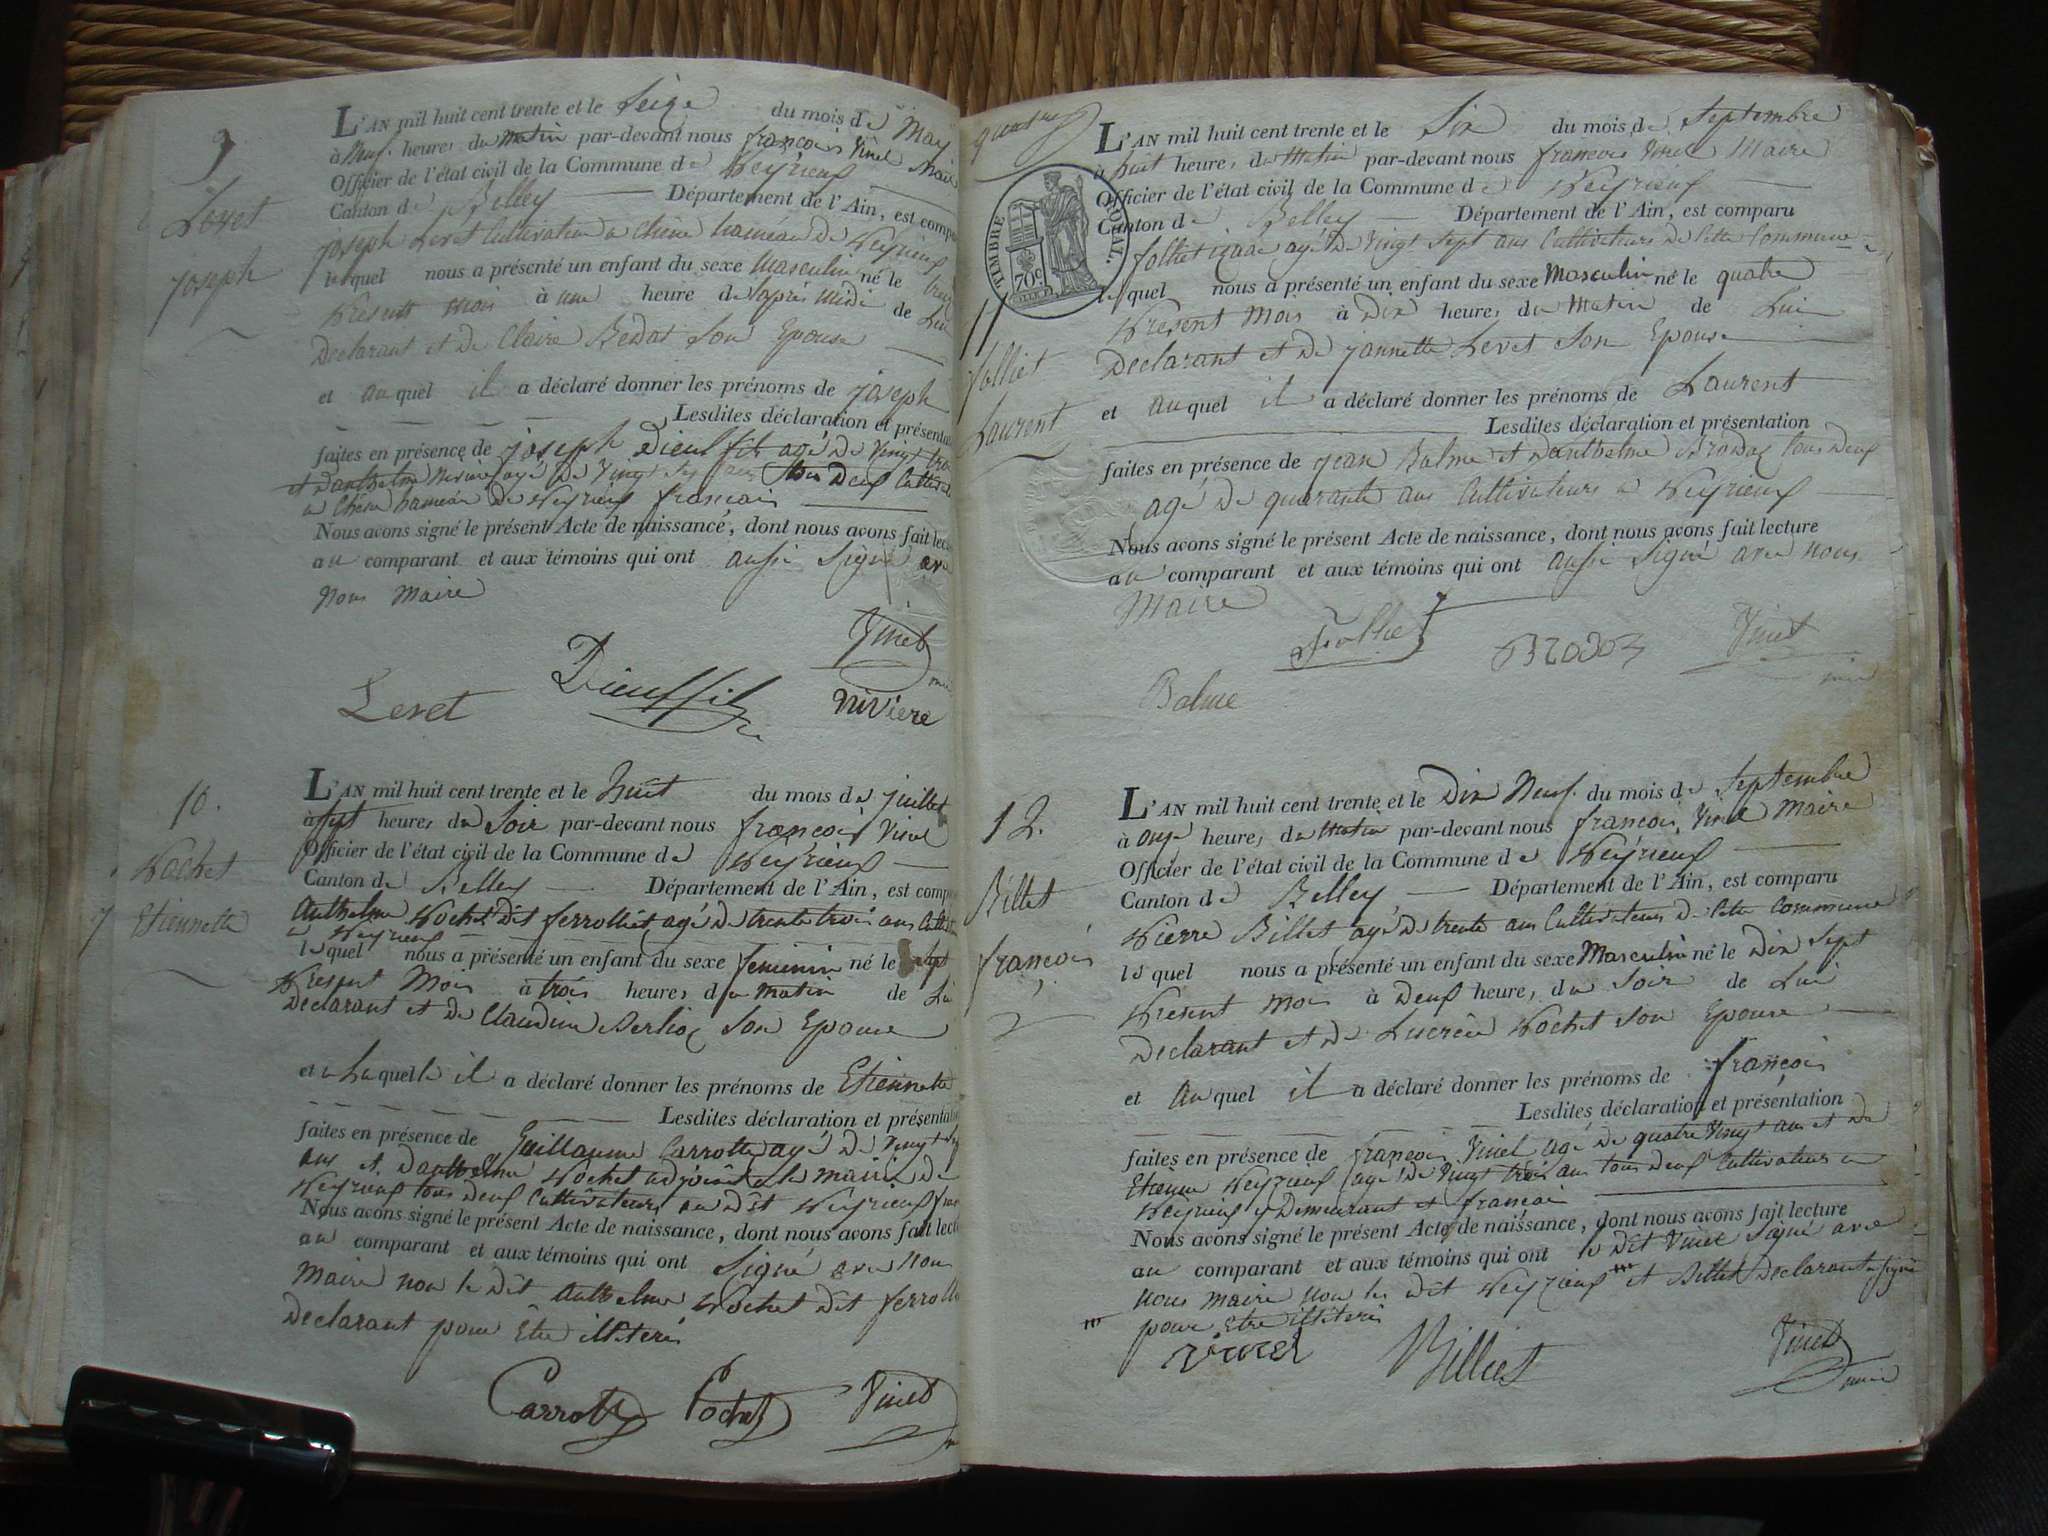 9
Levet
joseph
L'AN mil huit cent trente et le Seize du mois de May
à Neuf heures du Matin par-devant nous françois Vinet Maire
Officier de l'état civil de la Commune de Peyrieux
Canton de Belley Département de l'Ain, est compa
joseph Levet Cultivateur a Chêne hameau de Peyrieux
lequel nous a présenté un enfant du sexe Masculin né le
Present mois à une heure de après midi de Lui
Declarant et de Claire Bedat Son Epouse
et auquel il a déclaré donner les prénoms de joseph
Lesdites déclaration et présenta
faites en présence de joseph Dieufit agé de Vingt trois
et d'anthelme Niviere agé de Vingt ans tous Deux Cultivat
a Chêne hameau de Peyrieux francais
Nous avons signé le présent Acte de naissance, dont nous avons fait lec
au comparant et aux témoins qui ont aussi Signé avec
Nous Maire
Vinet
Levet Dieuffit Niviere
10.
Pochet
Etiennette
L'AN mil huit cent trente et le huit du mois de juillet
à Sept heures du Soir par-devant nous françois Vinet
Officier de l'état civil de la Commune de Peyrieux
Canton de Belley Département de l'Ain, est comp
Anthelme Pochet dit ferrolliet agé de trente trois ans Cult
a Peyrieux
lequel nous a présenté un enfant du sexe feminin né le Sept
Present Mois à trois heures du Matin de Lui
Declarant et de Claudine Berlioz Son Epouse
et a Laquelle il a déclaré donner les prénoms de Etiennette
Lesdites déclaration et présenta
faites en présence de Guillaume Carrotte agé de Vingt
ans et d'anthelme Pochet adjoint a la mairie de
Peyrieux tous deux Cultivateurs au dit Peyrieux
Nous avons signé le présent Acte de naissance, dont nous avons fait lect
au comparant et aux témoins qui ont Signé avec Nous
Maire non le dit Anthelme Pochet dit ferroll
Declarant pour Etre illiteré
Carrotte Pochet Vinet
TIMBRE ROYAL.
70c
11
folliet
Laurent
L'AN mil huit cent trente et le Six du mois de Septembre
à huit heures du Matin par-devant nous francois Vinet Maire
Officier de l'état civil de la Commune de Peyrieux
Canton de Belley Département de l'Ain, est comparu
folliet agé de Vingt Sept ans Cultivateurs de Cette Commune
lequel nous a présenté un enfant du sexe Masculin né le quatre
Present Mois à Dix heures du Matin de Lui
Declarant et de jannette Levet Son Epouse
et auquel il a déclaré donner les prénoms de Laurent
Lesdites déclaration et présentation
faites en présence de jean Balme et d'anthelme Brodoz tous Deux
agé de quarante ans Cultivateurs a Peyrieux
Nous avons signé le présent Acte de naissance, dont nous avons fait lecture
au comparant et aux témoins qui ont aussi Signé avec nous
Maire
Follie Brodoz Vinet
Balme
12.
Billet
françois
L'AN mil huit cent trente et le Dix Neuf du mois de Septembre
à onze heures du Matin par-devant nous françois Vinet Maire
Officier de l'état civil de la Commune de Peyrieux
Canton de Belley Département de l'Ain, est comparu
Pierre Billet agé de trente ans Cultivateurs de Cette Commune
lequel nous a présenté un enfant du sexe Masculin né le Dix Sept
Present mois à Deux heures du Soir de Lui
Declarant et de Lucrèce Pochet Son Epouse
et auquel il a déclaré donner les prénoms de françois
Lesdites déclaration et présentation
faites en présence de françois Vinet agé de quatre Vingt ans et de
Etienne Peyrieux agé de Vingt trois ans tous deux Cultivateurs a
Peyrieux y Demeurant et francais
Nous avons signé le présent Acte de naissance, dont nous avons fait lecture
au comparant et aux témoins qui ont le dit Vinet Signé avec
nous maire non les dit Peyrieux et Billet Declarant
pour Etre illiteré
Vinet Billiet Vinet